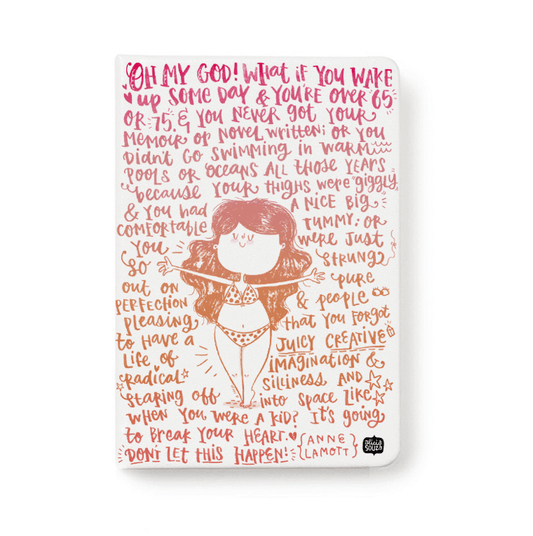 OH MY GOD! WHAT IF YOU WAKE
up SOME DAY & YOU'RE OVER 65
OR 75, & YOU NEVER GOT YOUR
MEMOIR OR NOVEL WRITTEN; OR YOU
DIDN'T GO SWIMMING IN WARM
POOLS OR OCEANS ALL THOSE YEARS
because YOUR THIGHS WERE GIGGLY,
& YOU HAD A NICE BIG
COMFORTABLE TUMMY; OR
YOU WERE JUST
SO STRUNG
OUT ON PURE
PERFECTION & PEOPLE
PLEASING THAT YOU FORGOT
TO HAVE A JUICY CREATIVE
LIFE OF IMAGINATION &
RADICAL SILLINESS AND
STARING OFF INTO SPACE LIKE
WHEN YOU WERE A KID? IT'S GOING
to BREAK YOUR HEART. {ANNE
DON'T LET THIS HAPPEN! LAMOTT}
alicia
souza